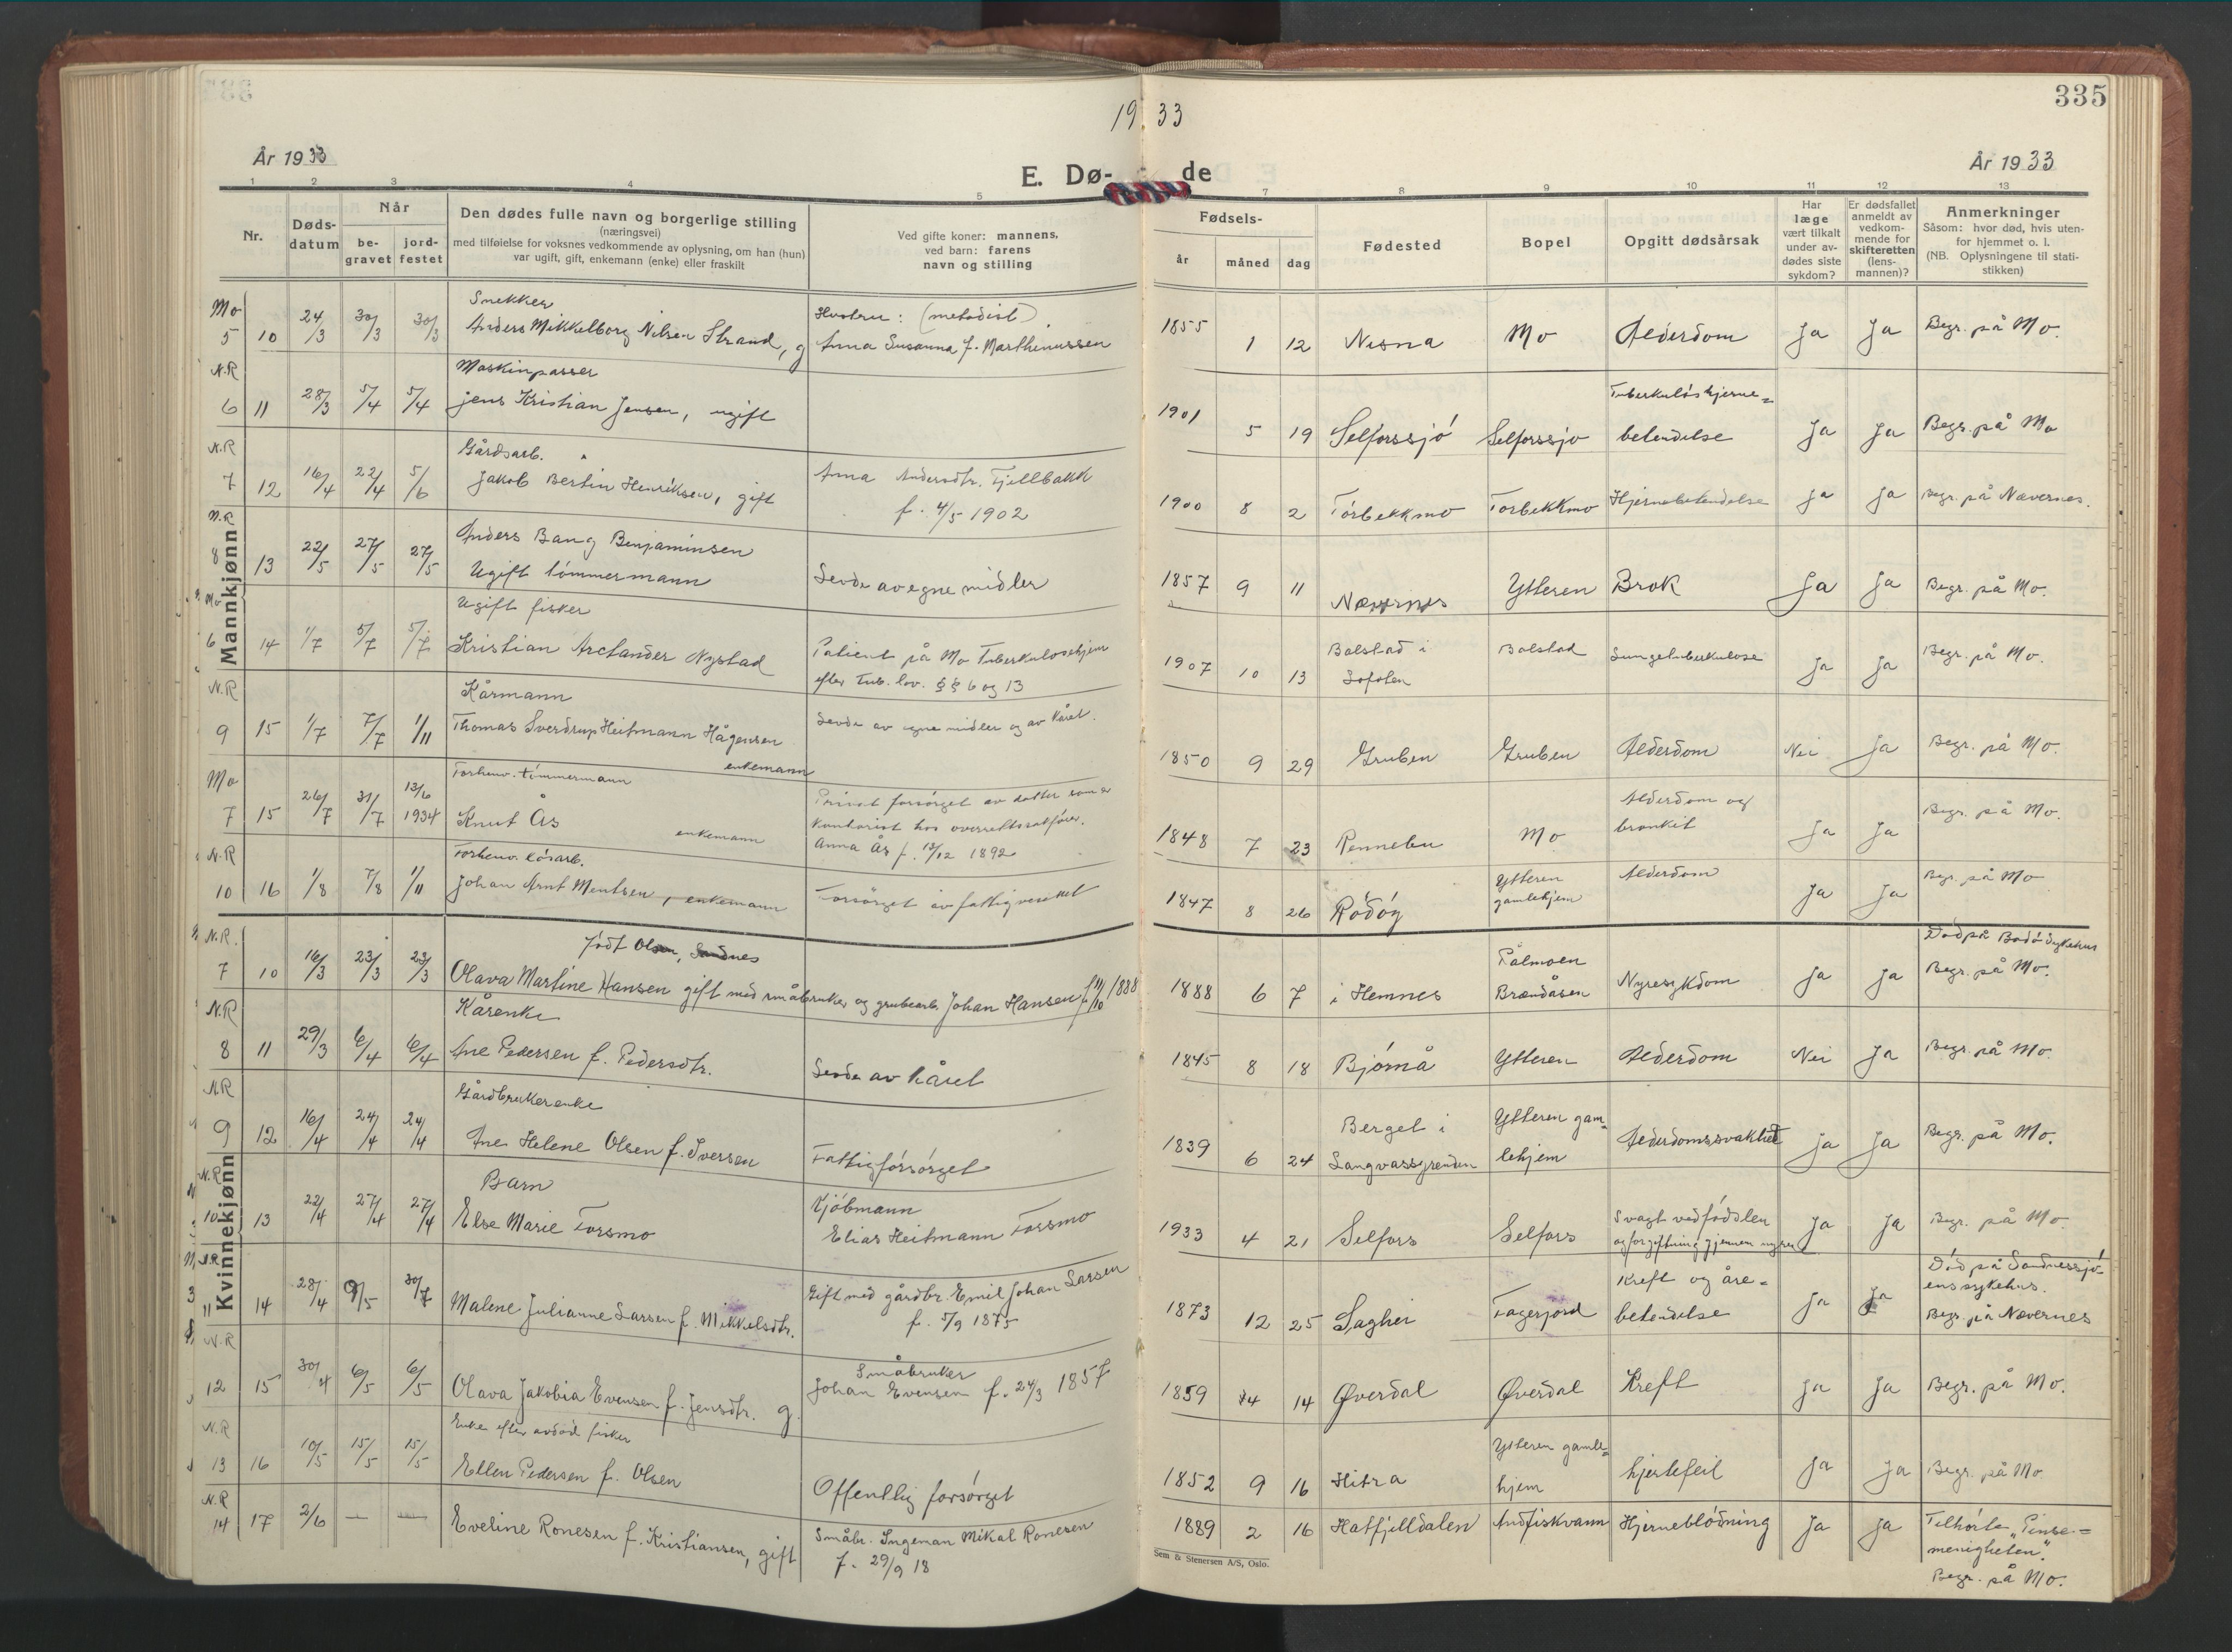 335
19 33
År 1933
År 1933
E. Dø- de
1 2 3 4 5 7 8 9 10 11 12 13
Nr.
Døds-
datum
Når
be-
gravet
jord-
festet
Den dødes fulle navn og borgerlige stilling
(næringsvei)
med tilføielse for voksnes vedkommende av oplysning, om han (hun)
var ugift, gift, enkemann (enke) eller fraskilt
Ved gifte koner: mannens,
ved barn: farens
navn og stilling
Fødsels-
år måned dag
Fødested
Bopel
Opgitt dødsårsak
Har
læge
vært tilkalt
under av-
dødes siste
sykdom?
Er dødsfallet
anmeldt av
vedkom-
mende for
skifteretten
(lens-
mannen)?
Anmerkninger
Såsom: hvor død, hvis uten-
for hjemmet o. l.
(NB. Oplysningene til stati-
stikken)
Mankjønn
Mo Snekker Hustru: (metodist)
5 10 24/3 30/3 30/3 Anders Mikkelborg Nilsen Strand, g Anna Susanna f. Marthinussen 1855 1 12 Nesna Mo Alderdom Ja Ja Begr. på Mo.
N.R Maskinpasser Tuberkuløs hjerne=
6 11 28/3 5/4 5/4 Jens Kristian Jensen, ugift 1901 5 19 Selforssjö Selforssjo betendelse Ja Ja Begr. på Mo
N.R Gårdsarb.
7 12 16/4 22/4 5/6 Jakob Bertin Henriksen, gift Anna Andersdtr. Fjellbakk 1900 8 2 Torbekkmo Torbekkmo Hjernebetendelse Ja Ja Begr. på Nævernes.
f. 4/5 1902
N.R Anders Bang Benjaminsen
8 13 22/5 27/5 27/5 Ugift tömmermann Levde av egne midler 1857 9 11 Nævernes Ytteren Brok Ja Ja Begr. på Mo.
Mo Ugift fisker Balstad i
6 14 1/7 5/7 5/7 Kristian Arctander Nystad Patient på Mo Tuberkulosehjem 1907 10 13 Lofoten Balstad Lungetuberkulose Ja Ja Begr. på Mo.
efter Tub. lov. §§ 6 og 13
N.R Kårmann
9 15 1/7 7/7 1/11 Thomas Sverdrup Heitmann Hågensen Levde av egne midler og av Kåret. 1850 9 29 Gruben Gruben Alderdom Nei Ja Begr. på Mo.
enkemann
Mo Forhenv. tömmermann Privat forsörget av datter som er Alderdom og
7 15 26/7 31/7 13/6 1934 Knut Ås enkemann kontorist hos overrettssakförer. 1848 7 23 Rennebu Mo bronkit Ja Ja Begr. på Mo.
Anna Ås f. 12/12 1892
N.R Forhenv. lösarb. Ytteren
10 16 1/8 7/8 1/11 Johan Arnt Mentsen, enkemann Forsörget av fattigvesenet 1847 8 26 Rödöy gamlehjem Alderdom Ja Ja Begr. på Mo
Kvinnekjønn
N.R. födt Olsen, Sandnes Pålmoen Död på Bodö Sykehus
7 10 16/3 23/3 23/3 Olava Martine Hansen gift med småbruker og grubearb. Johan Hansen f. 14/10 1888 1888 6 7 i Hemnes Brændåsen Nyresykdom Ja Ja Begr. på Mo.
N.R Kårenke
8 11 29/3 6/4 6/4 Ane Pedersen f. Pedersdtr. Levde av kåret 1845 8 18 Bjórnå Ytteren Alderdom Nei Ja Begr. på Mo.
N.R Gårdbrukerenke Berget i Ytteren gam=
9 12 16/4 24/4 24/4 Ane Helene Olsen f. Iversen Fattigforsörget 1839 6 24 Langvassgrenden lehjem Alderdomssvakhet Ja Ja Begr. på Mo.
N.R Barn Kjöbmann Svagt ved födslen
10 13 22/4 27/4 27/4 Else Marie Forsmo Elias Heitmann Forsmo 1933 4 21 Selfors Selfors og forgiftning gjennem nyrer Ja Ja Begr. på Mo.
N.R Gift med gårdbr. Emil Johan Larsen Kreft og åre= Död på Sandnessjö
11 14 28/4 9/5 30/7 Malene Julianne Larsen f. Mikkelsdtr. f. 5/9 1875 1873 12 25 Laghei Fagerjord betendelse Ja Ja ens sykehus.
Begr. på Nævernes
N.R Småbruker
12 15 30/4 6/5 6/5 Olava Jakobia Evensen f. Jensdtr. g. Johan Evensen f. 24/3 1857 1859 4 14 Øverdal Øverdal Kreft Ja Ja Begr. på Mo.
N.R Enke efter avdöd fisker Ytteren gamle=
13 16 10/5 15/5 15/5 Ellen Pedersen f. Olsen Offentlig forsörget 1852 9 16 Hitra hjem hjertefeil Ja Ja Begr. på Mo
N.R
14 17 2/6 — — Eveline Ronesen f. Kristiansen, gift Småbr. Ingeman Mikal Ronesen 1889 2 16 Hatfjelldalen Andfiskvann Hjerneblödning Ja Ja Tilhörte „Pinse=
f. 29/9 18 menigheten".
Begr. på Mo.
Sem & Stenersen A/S, Oslo.